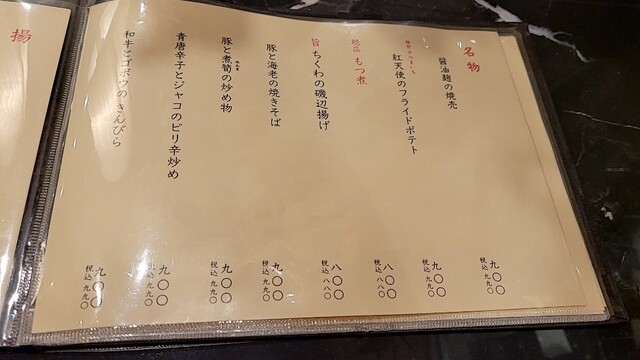 名物
醤油麹の焼売
九〇〇
税込 九九〇
紅天使のフライドポテト
九〇〇
税込 九九〇
絶品 もつ煮
八〇〇
税込 八八〇
旨 ちくわの磯辺揚げ
八〇〇
税込 八八〇
豚と海老の焼きそば
九〇〇
税込 九九〇
豚と煮筍の炒め物
九〇〇
税込 九九〇
青唐辛子とジャコのピリ辛炒め
九〇〇
税込 九九〇
和牛とゴボウのきんぴら
九〇〇
税込 九九〇
揚